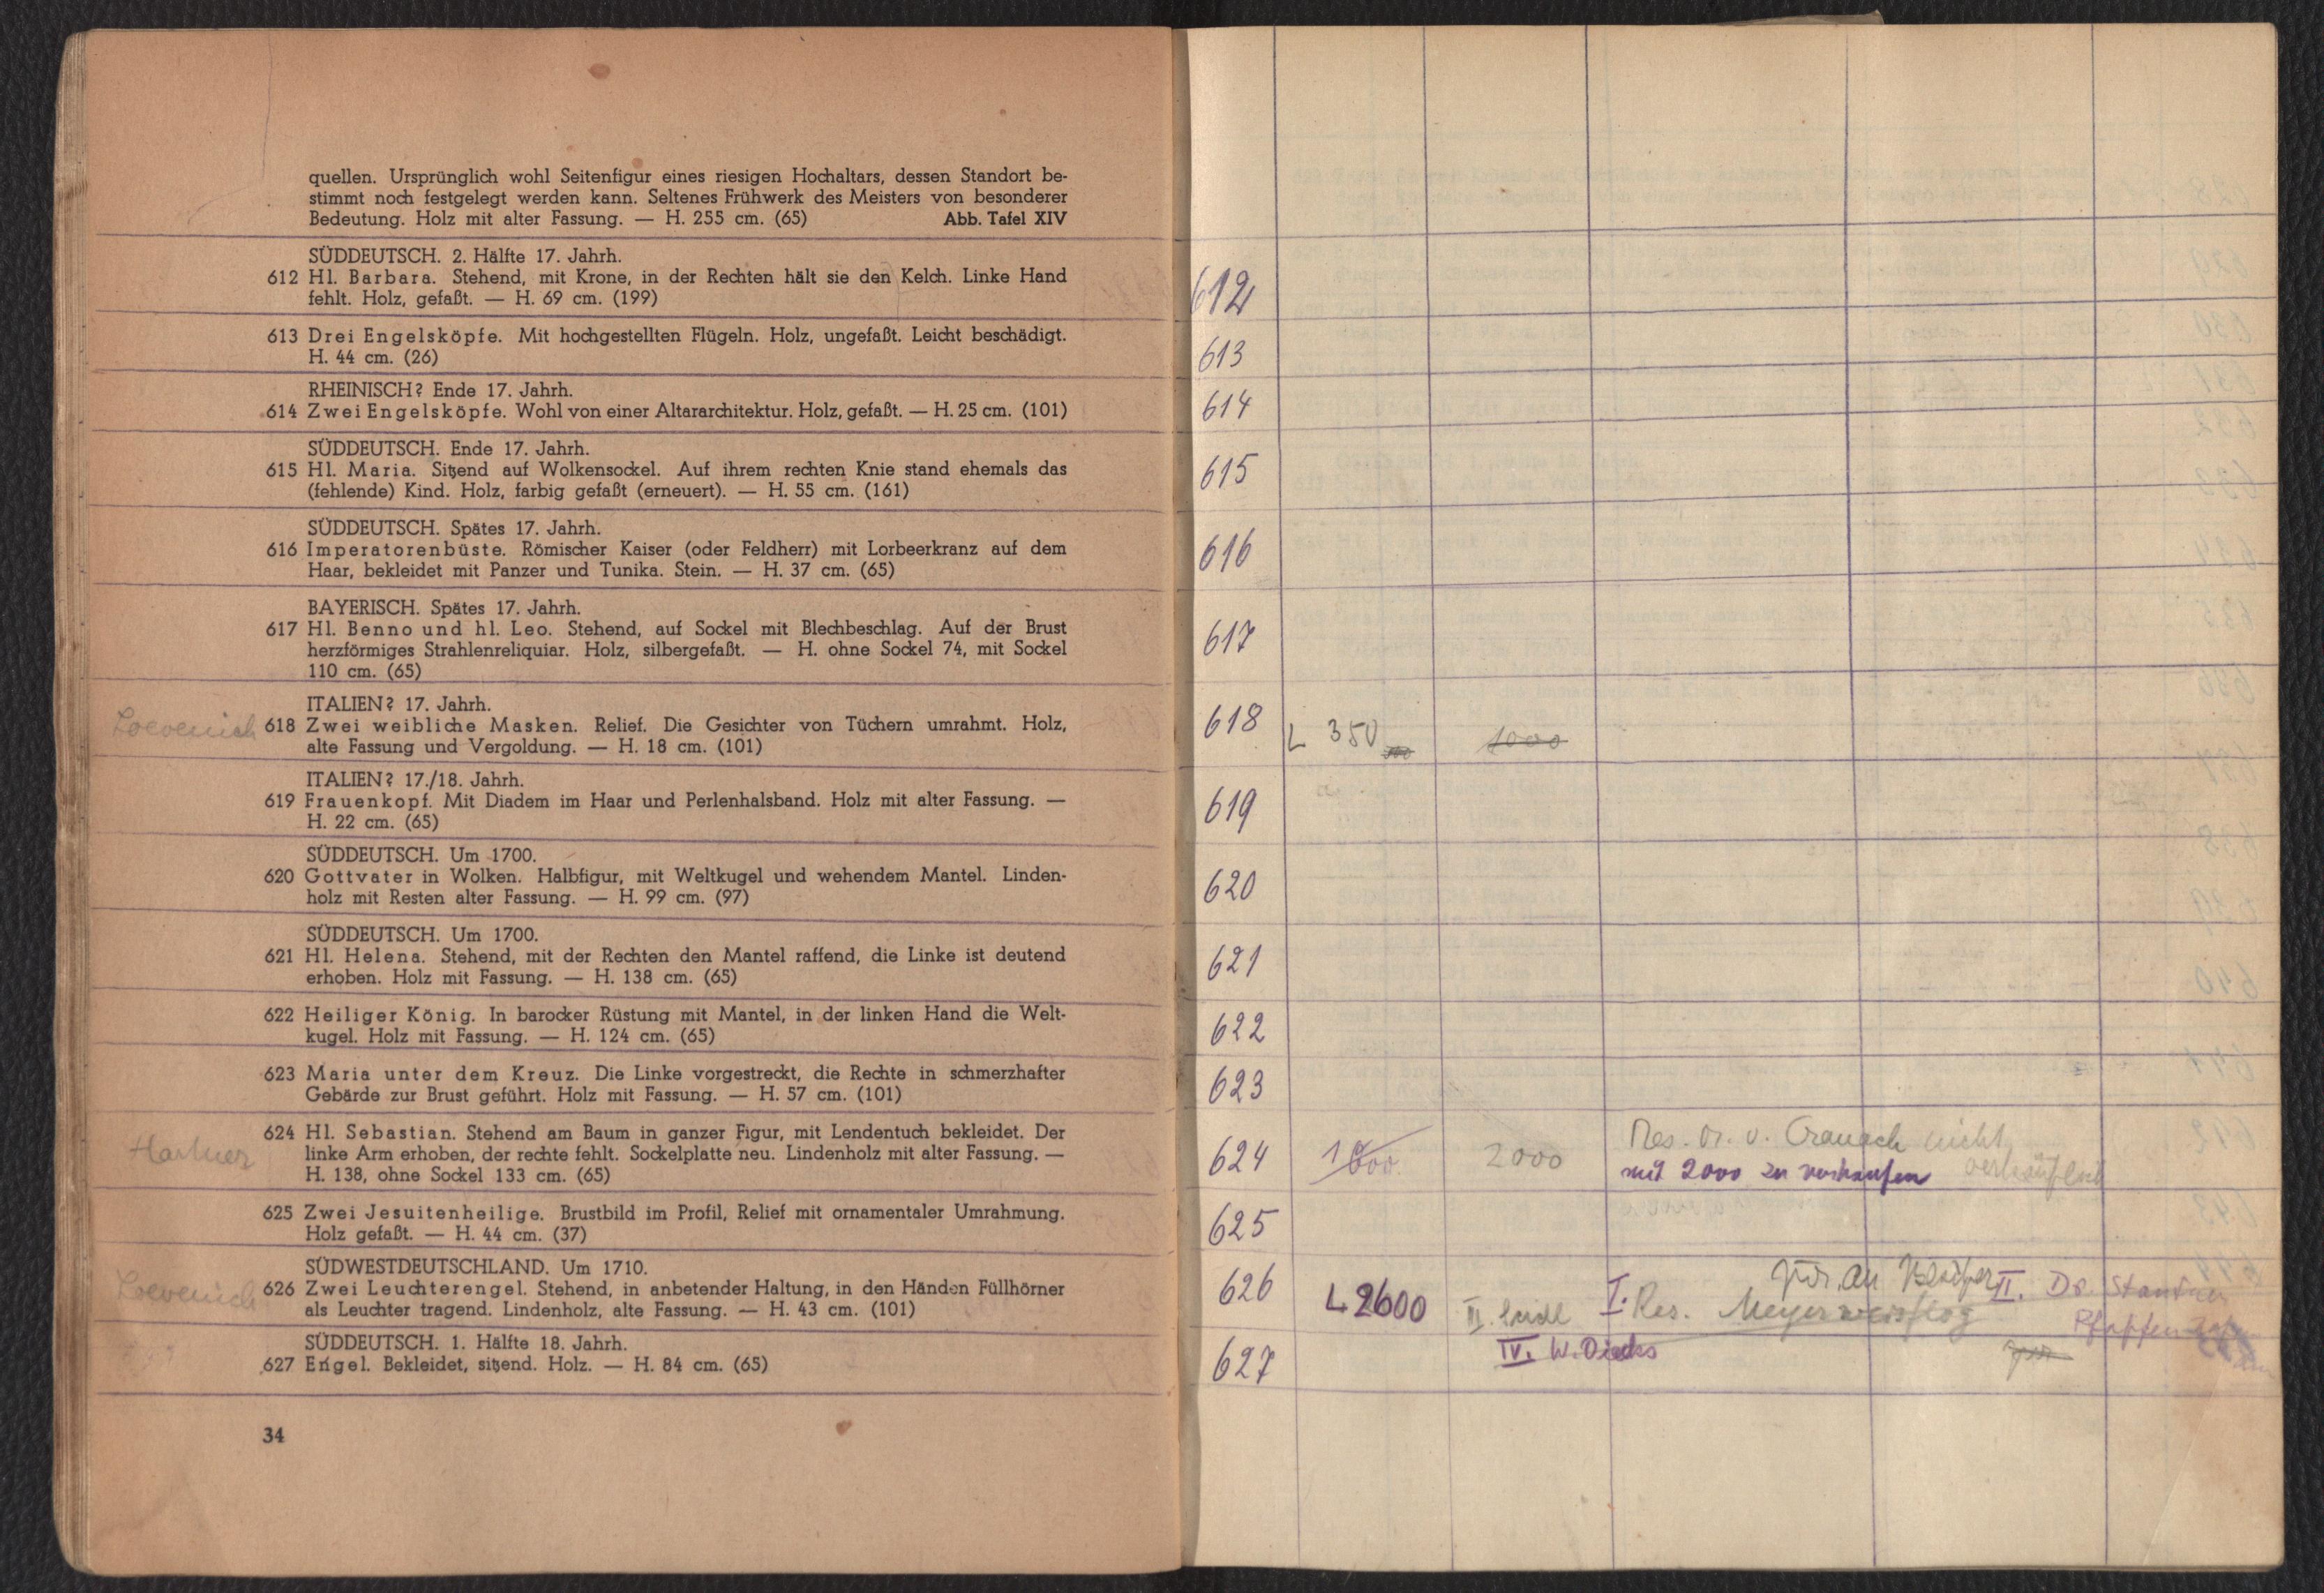 quellen. Ursprünglich wohl Seitenfigur eines riesigen Hochaltars, dessen Standort be-
stimmt noch festgelegt werden kann. Seltenes Frühwerk des Meisters von besonderer
Bedeutung. Holz mit alter Fassung. — H. 255 cm. (65) Abb. Tafel XIV
SÜDDEUTSCH. 2. Hälfte 17. Jahrh.
612 Hl. Barbara. Stehend, mit Krone, in der Rechten hält sie den Kelch. Linke Hand
fehlt. Holz, gefaßt. — H. 69 cm. (199)
613 Drei Engelsköpfe. Mit hochgestellten Flügeln. Holz, ungefaßt. Leicht beschädigt.
H. 44 cm. (26)
RHEINISCH? Ende 17. Jahrh.
614 Zwei Engelsköpfe. Wohl von einer Altararchitektur. Holz, gefaßt. — H. 25 cm. (101)
SÜDDEUTSCH. Ende 17. Jahrh.
615 Hl. Maria. Sitzend auf Wolkensockel. Auf ihrem rechten Knie stand ehemals das
(fehlende) Kind. Holz, farbig gefaßt (erneuert). — H. 55 cm. (161)
SÜDDEUTSCH. Spätes 17. Jahrh.
616 Imperatorenbüste. Römischer Kaiser (oder Feldherr) mit Lorbeerkranz auf dem
Haar, bekleidet mit Panzer und Tunika. Stein. — H. 37 cm. (65)
BAYERISCH. Spätes 17. Jahrh.
617 Hl. Benno und hl. Leo. Stehend, auf Sockel mit Blechbeschlag. Auf der Brust
herzförmiges Strahlenreliquiar. Holz, silbergefaßt. — H. ohne Sockel 74, mit Sockel
110 cm. (65)
ITALIEN? 17. Jahrh.
Loevenich 618 Zwei weibliche Masken. Relief. Die Gesichter von Tüchern umrahmt. Holz,
alte Fassung und Vergoldung. — H. 18 cm. (101)
ITALIEN? 17./18. Jahrh.
619 Frauenkopf. Mit Diadem im Haar und Perlenhalsband. Holz mit alter Fassung. —
H. 22 cm. (65)
SÜDDEUTSCH. Um 1700.
620 Gottvater in Wolken. Halbfigur, mit Weltkugel und wehendem Mantel. Linden-
holz mit Resten alter Fassung. — H. 99 cm. (97)
SÜDDEUTSCH. Um 1700.
621 Hl. Helena. Stehend, mit der Rechten den Mantel raffend, die Linke ist deutend
erhoben. Holz mit Fassung. — H. 138 cm. (65)
622 Heiliger König. In barocker Rüstung mit Mantel, in der linken Hand die Welt-
kugel. Holz mit Fassung. — H. 124 cm. (65)
623 Maria unter dem Kreuz. Die Linke vorgestreckt, die Rechte in schmerzhafter
Gebärde zur Brust geführt. Holz mit Fassung. — H. 57 cm. (101)
Hartner 624 Hl. Sebastian. Stehend am Baum in ganzer Figur, mit Lendentuch bekleidet. Der
linke Arm erhoben, der rechte fehlt. Sockelplatte neu. Lindenholz mit alter Fassung. —
H. 138, ohne Sockel 133 cm. (65)
625 Zwei Jesuitenheilige. Brustbild im Profil, Relief mit ornamentaler Umrahmung.
Holz gefaßt. — H. 44 cm. (37)
SÜDWESTDEUTSCHLAND. Um 1710.
Loevenich 626 Zwei Leuchterengel. Stehend, in anbetender Haltung, in den Händen Füllhörner
als Leuchter tragend. Lindenholz, alte Fassung. — H. 43 cm. (101)
SÜDDEUTSCH. 1. Hälfte 18. Jahrh.
627 Engel. Bekleidet, sitzend. Holz. — H. 84 cm. (65)
34
612
613
614
615
616
617
618 L 350 1000
619
620
621
622
623
624 2000 Res. Dr. v. Cranach nicht
mit 2000 zu verkaufen verkäuflich
625
626 L 2600 I. Res. Meyer II. Dr.
IV. W. Dierks
627